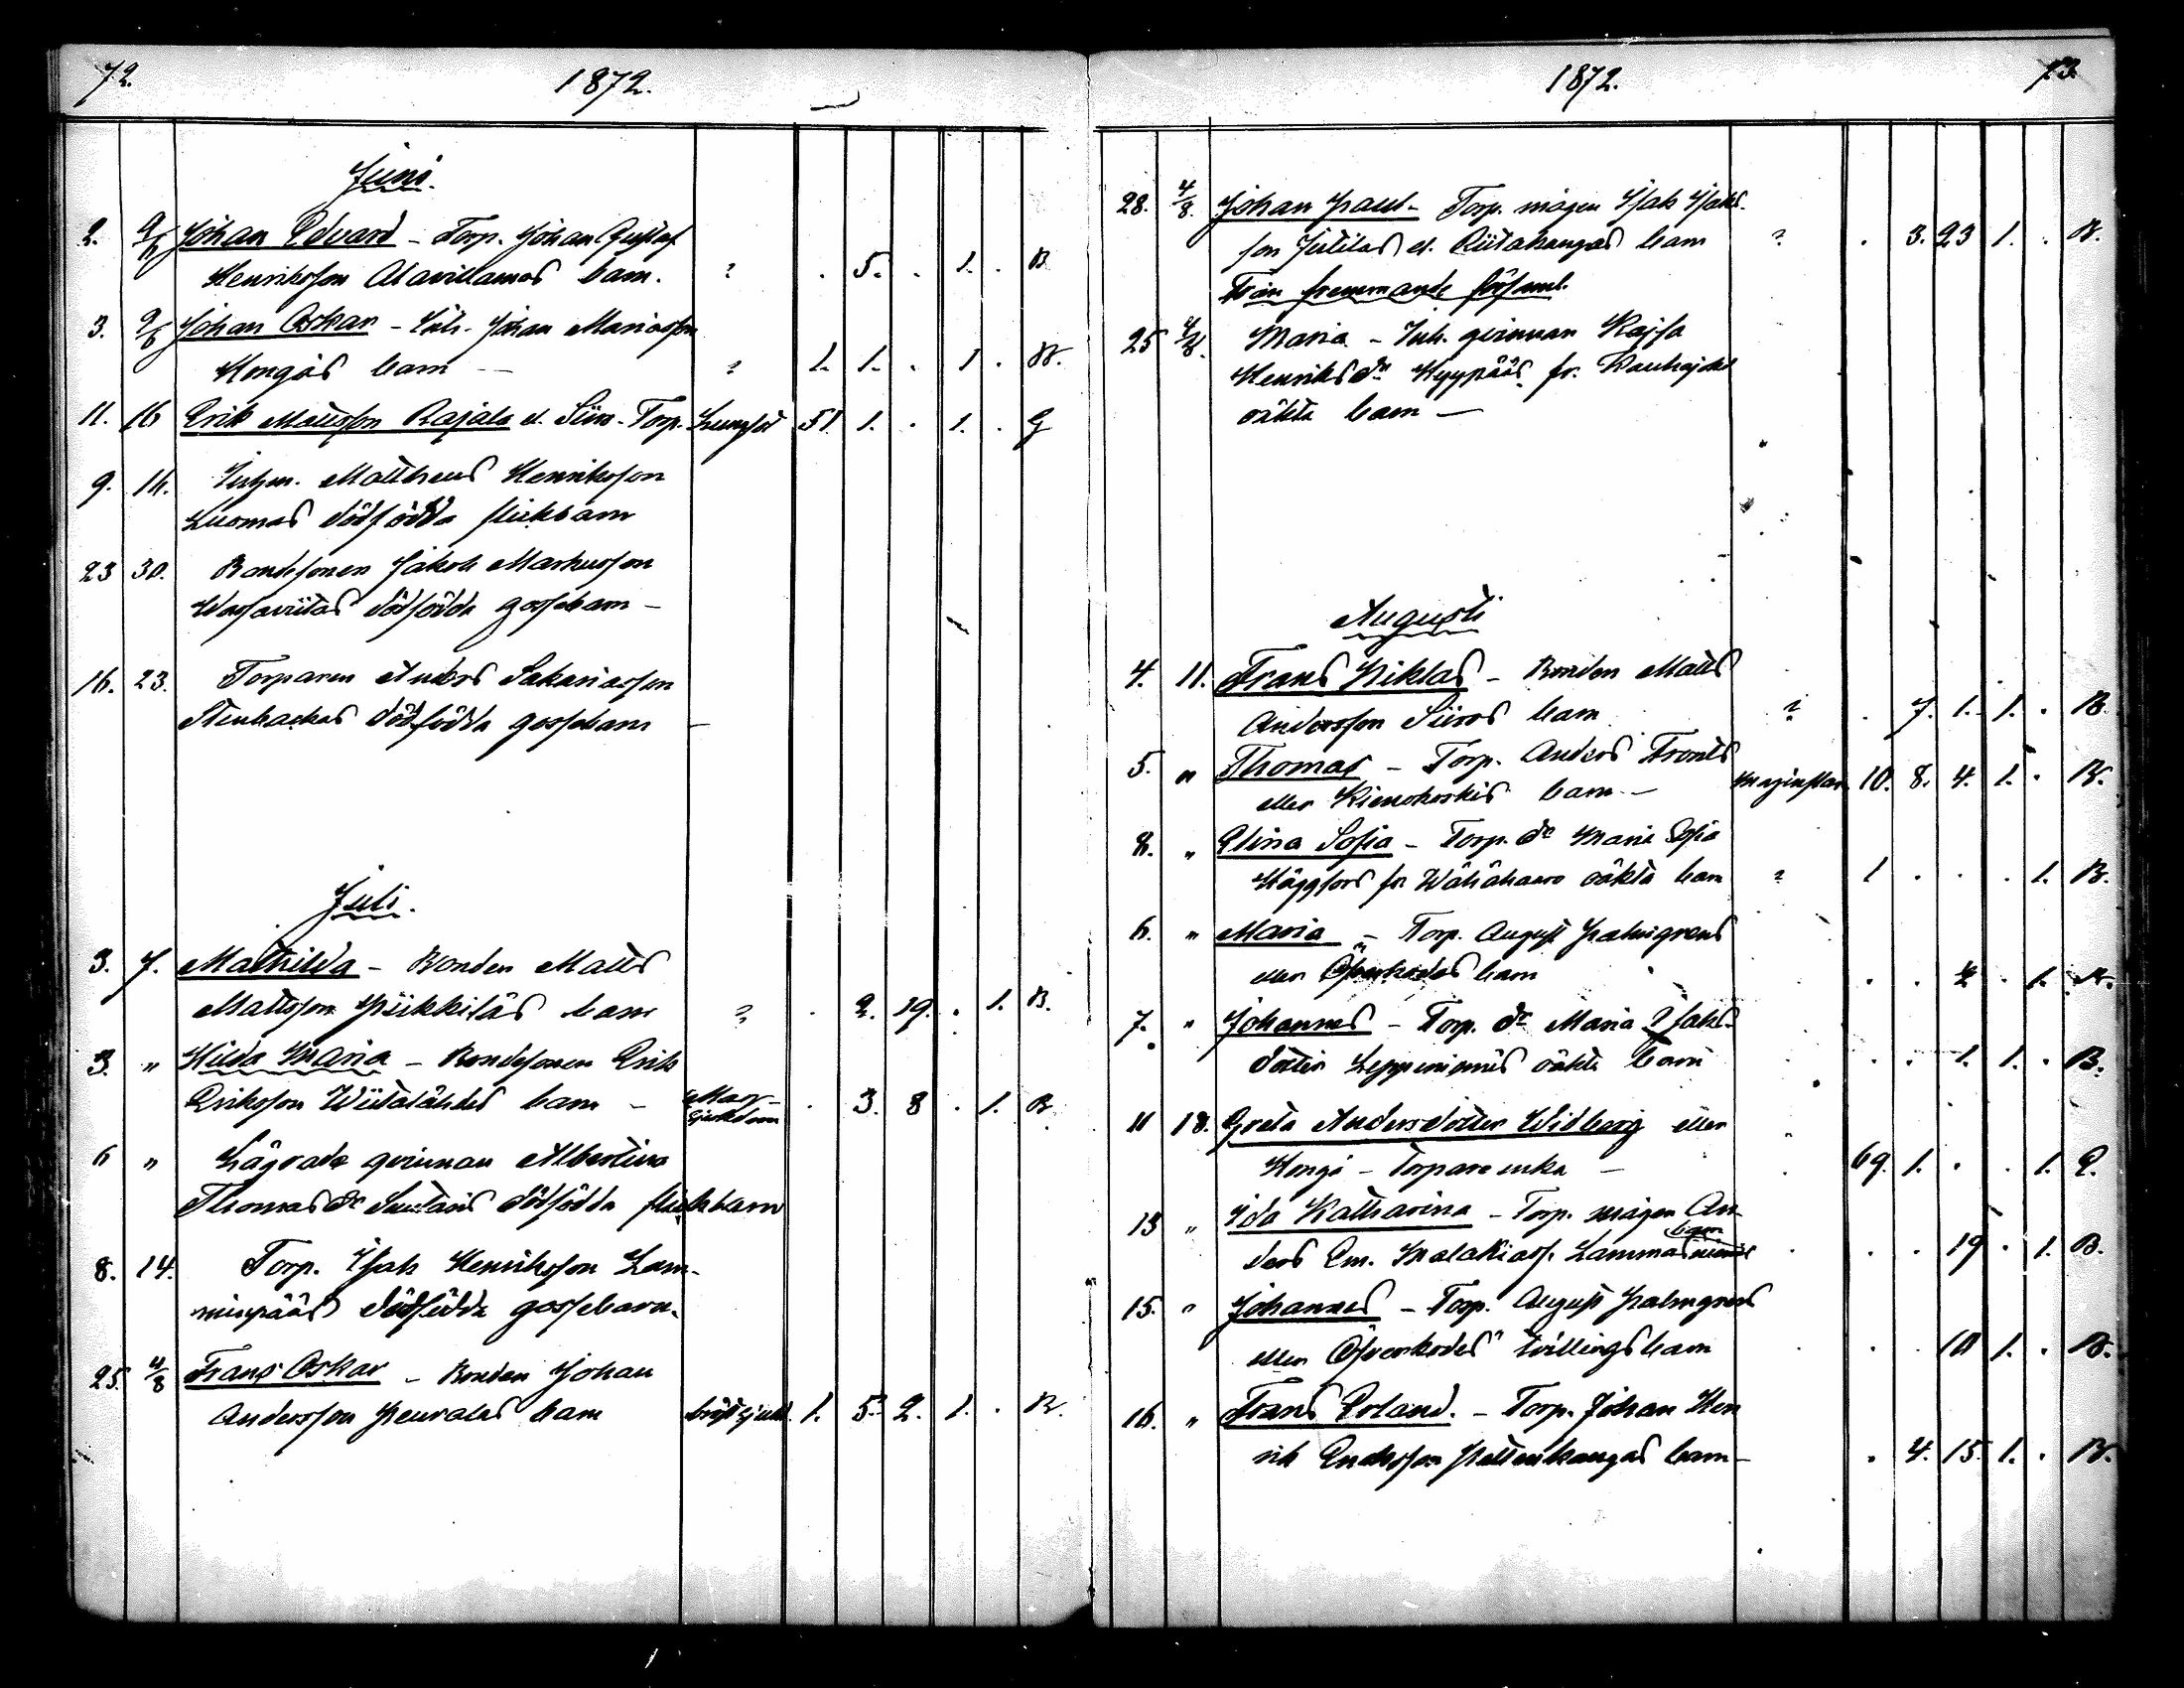 72. 1872.
Juni.
2. 9/6 Johan Edvard - Torp. Johan Gustaf
Henriksson Alavillamos barn. ? . 5. . 1. . B
3. 9/6 Johan Oskar - Inh. Johan Mariasson
Kongas barn - ? 1. 1. . 1 . B.
11. 16 Erik Mattsson Rajala el. Siiro - Torp. Lungsot 51. 1. . 1. . G
9. 16. Inhm. Mattheus Henriksson
Luomas dödfödda flickbarn
23 30. Bondesonen Jakob Markusson
dödfödda gossebarn -
16. 23. Torparen Anders Sakariasson
Stenbackas dödfödda gossebarn -
Juli.
3. 7. Mathilda - Bonden Matts
Mattsson Pukkiläs barn ? . 2. 19. . 1. B.
3. " Hilda Maria - Bondesonen Erik
Eriksson Wiitalähdes barn - Mag-
sjukdom . 3. 8 . 1. B
6 " Lägrade qvinnan Albertina
Thomas dr dödfödda flickbarn
8. 14. Torp. Isak Henriksson Lam-
minpääs dödfödda gossebarn.
25. 4/8 Frans Oskar - Bonden Johan
Andersson Peuralas barn bröstsjukd. 1. 5. 2. 1. . B.
1872. 73.
28. 4/8. Johan Paul - Torp. mågen Isak Isaks-
son Jutilas el. Riitakangas barn ? . 3. 23 1. . B.
Från fremmande församl.
25 4/8. Maria - Inh. qvinnan Kajsa
Henriks dr Kyypääs fr. Kauhajoki
oäkta barn -
Augusti
4. 11. Frans Niklas - Bonden Matts
Andersson Siiros barn ? . 7. 1. 1. . B.
5. " Thomas - Torp. Anders Fronts
eller Kienokoskis barn - Maginflam. 10. 8. 4. 1. . B.
8. " Elina Sofia - Torp. dr Maria Sofia
Häggfors fr Wähähaaro oäkta barn ? 1 . . . 1. B.
6. " Maria - Torp. August Palmgrens
eller Öfverkodas barn . . 2 . 1. B.
7. " Johannes - Torp. dr Maria Isaks-
dotter Leppiniemis oäkta barn . . . 1. 1. . B.
11 18. Greta Andersdotter Widberg eller
Kongo - Torpareenka - . 69. 1. . . 1. E.
13 " Ida Katharina - Torp. mågen An-
barn
ders Em. Malakiass. Lammasniemis . . . 19 . 1. B.
15. " Johannes - Torp. August Palmgrens
eller Öfverkodas tvillingsbarn . . . 10 1. . B.
16. " Frans Erland. - Torp. Johan Hen
rik Eneksson barn - . 4. 15. 1. . B.